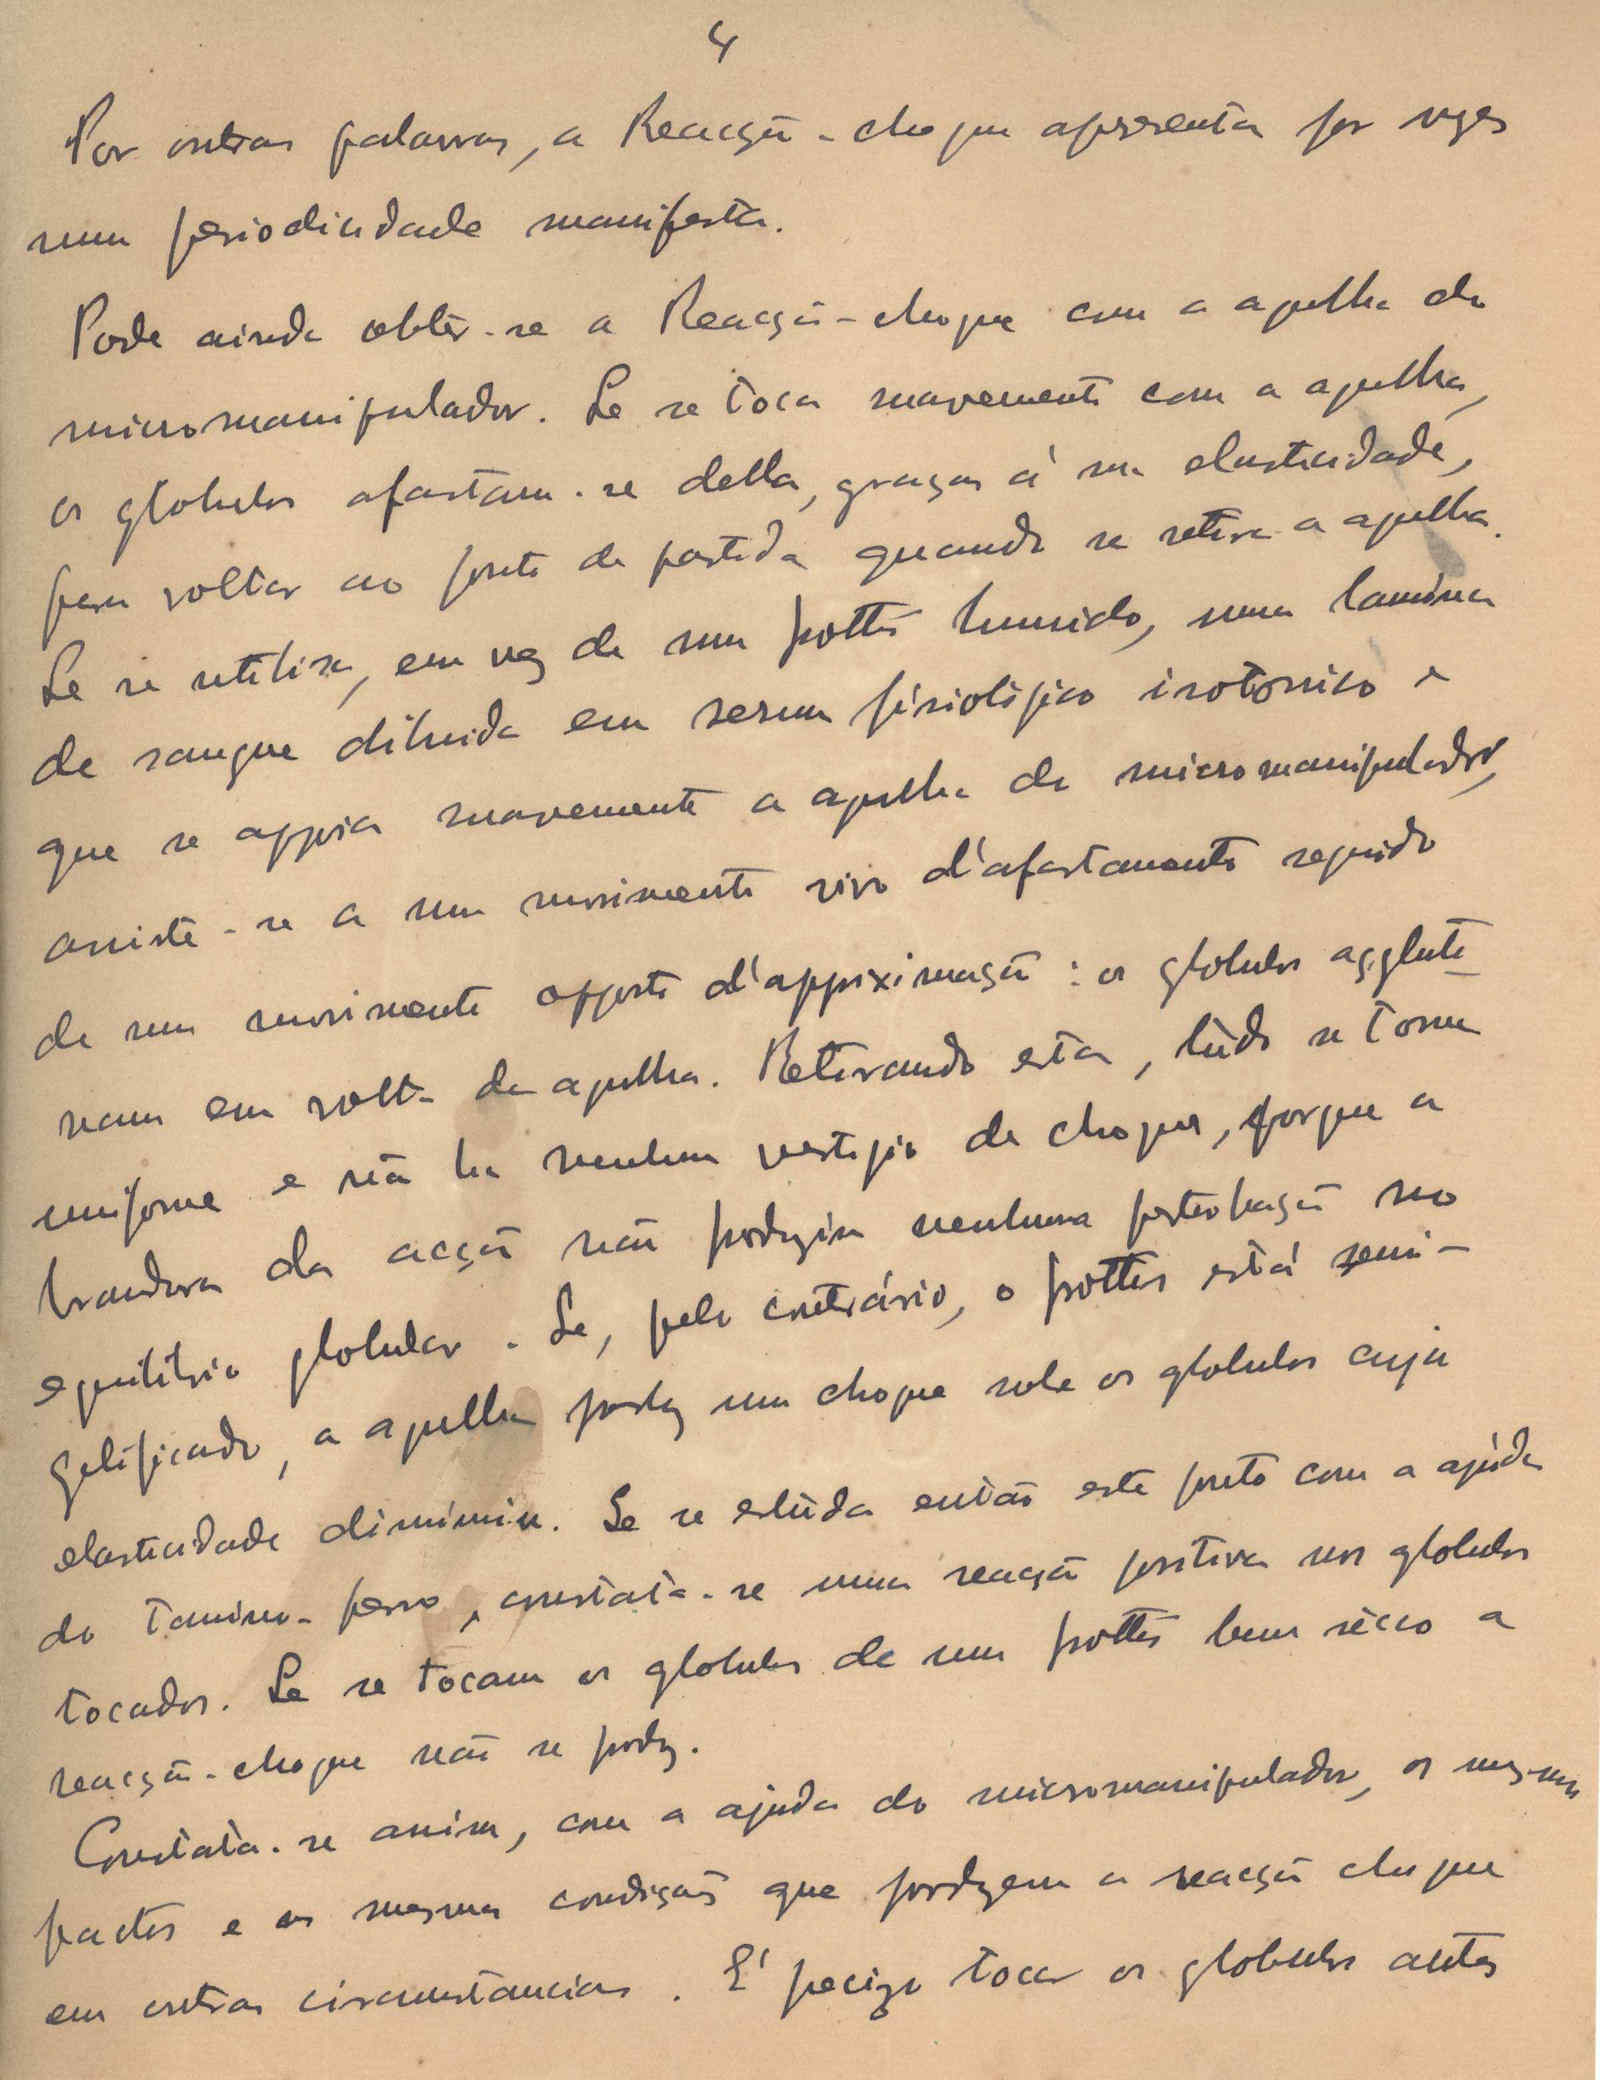 4
Por outras palavras, a Reacção-choque apresenta por vezes
uma periodicidade manifesta.
Pode ainda obter-se a Reacção-choque com a agulha do
micromanipulador. Se se toca suavemente com a agulha,
os globulos afastam-se della, graças á sua elasticidade,
para voltar ao ponto de partida quando se retira a agulha.
Se se utilisa, em vez de um frottis humido, uma lamina
de sangue diluida em serum fisiológico isotonico e
que se appoia suavemente a agulha do micromanipulador,
assiste-se a um movimento vivo d'afastamento seguido
de um movimento opposto d'approximação: os globulos aggluti-
nam em volta da agulha. Retirando esta, tudo se torna
uniforme e não ha nenhum vestigio de choque, porque a
brandura da acção não produziu nenhuma perturbação no
equilibrio globular. Se, pelo contrário, o frottis está semi-
gelificado, a agulha produz um choque sobre os globulos cuja
elasticidade diminuiu. Se se estuda então este ponto com a ajuda
do tanino-ferro, constata-se uma reacção positiva nos globulos
tocados. Se se tocam os globulos de um frottis bem sêcco a
reacção-choque não se produz.
Constata-se assim, com a ajuda do micromanipulador, os mesmos
factos e as mesmas condições que produzem a reacção choque
em outras circunstancias. É precizo tocar os globulos antes